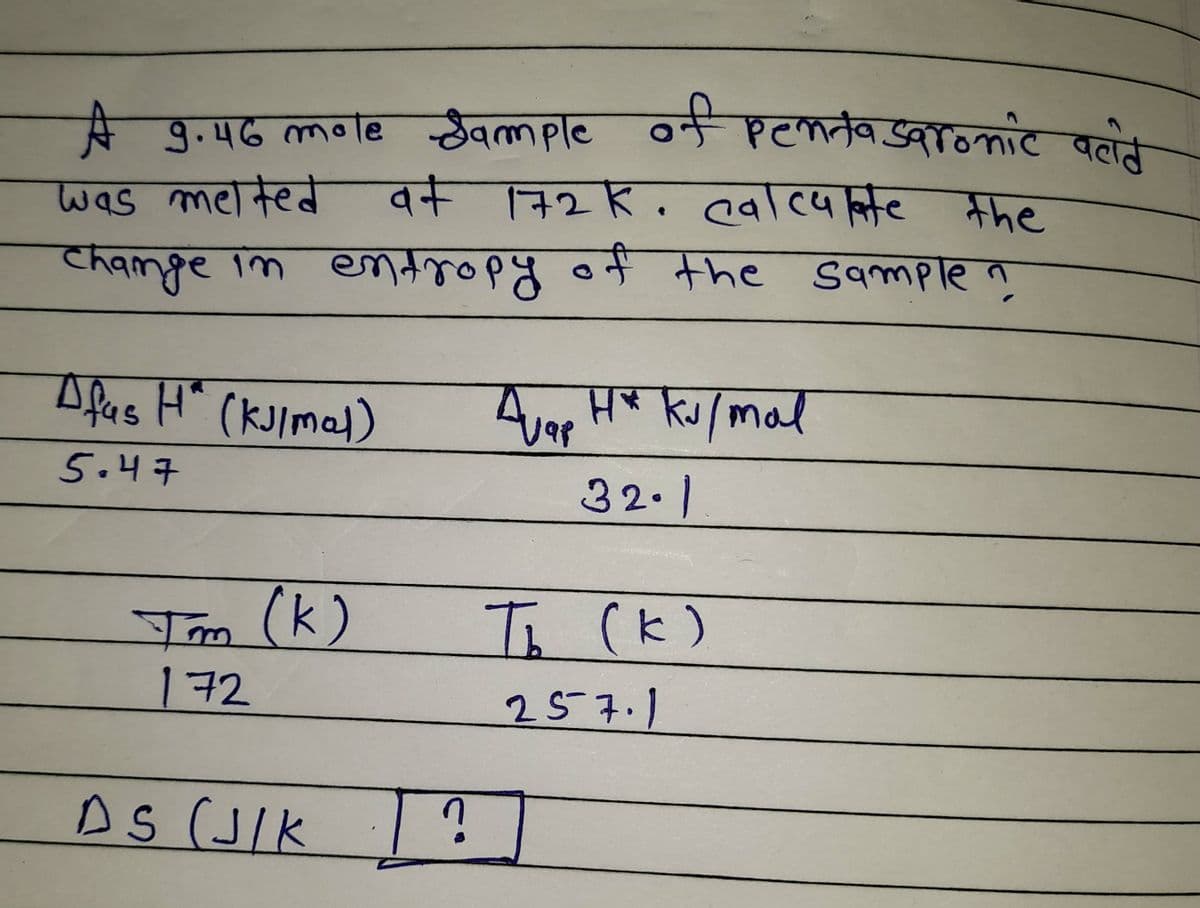 A 9.46 mole Sample of pentasaronic acid
was melted at 172 K. calculate the
change in entropy of the sample ?
Δfus H* (kJ/mol) Δvap H* kJ/mol
5.47 32.1
Tm (K) Tb (K)
172 257.1
ΔS (J/K ?